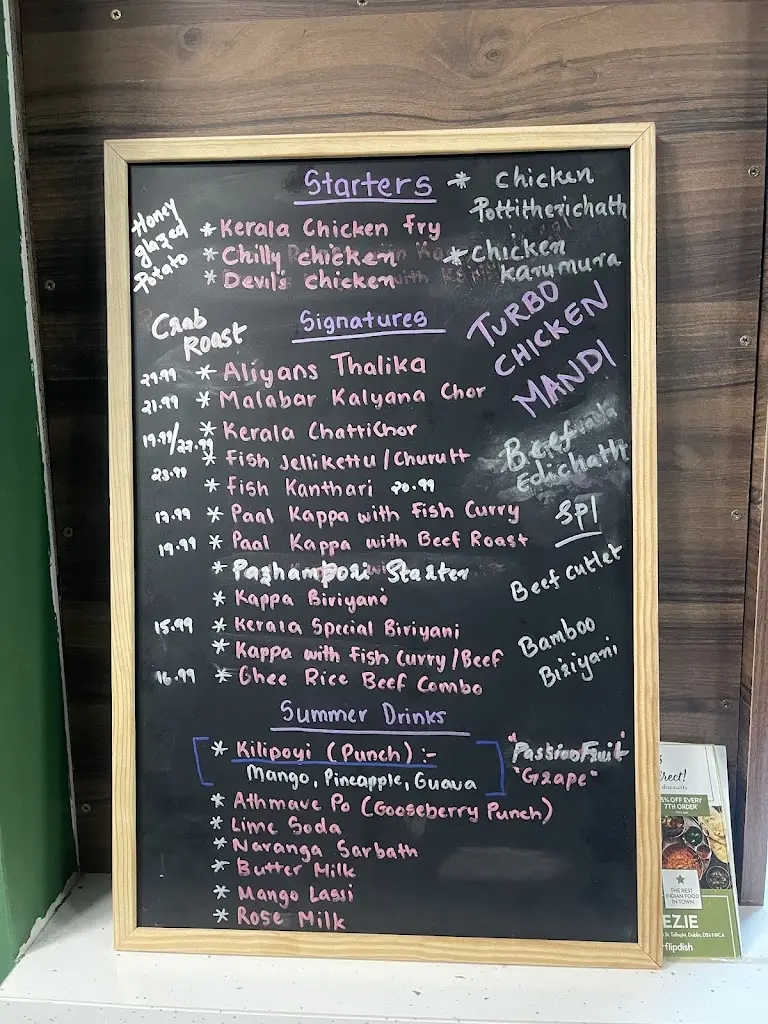 Starters
* Chicken
Pottitherichath
Honey
glazed
Potato
* Kerala Chicken Fry
* Chilly chicken
* Chicken
Karumura
* Devil's chicken
Crab
Roast
Signatures
TURBO
CHICKEN
MANDI
29.99 * Aliyans Thalika
21.99 * Malabar Kalyana Chor
19.99/27.99 * Kerala Chattichor
Beef
Edichath
23.99 * Fish Jellikettu/Churutt
* Fish Kanthari 20.99
17.99 * Paal Kappa with Fish Curry
Spl
19.99 * Paal Kappa with Beef Roast
* Pazhampori Starter
Beef cutlet
* Kappa Biriyani
15.99 * Kerala Special Biriyani
Bamboo
Biriyani
* Kappa with Fish Curry/Beef
16.99 * Ghee Rice Beef Combo
Summer Drinks
* Kilipoyi (Punch) :-
Mango, Pineapple, Guava
"PassionFruit"
"Grape"
* Athmave Po (Gooseberry Punch)
* Lime Soda
* Naranga Sarbath
* Butter Milk
* Mango Lassi
* Rose Milk
rect!
discounts
5% OFF EVERY
7TH ORDER*
THE BEST
INDIAN FOOD
IN TOWN
EZ.IE
St, Tallaght, Dublin, D24 N1CA
flipdish